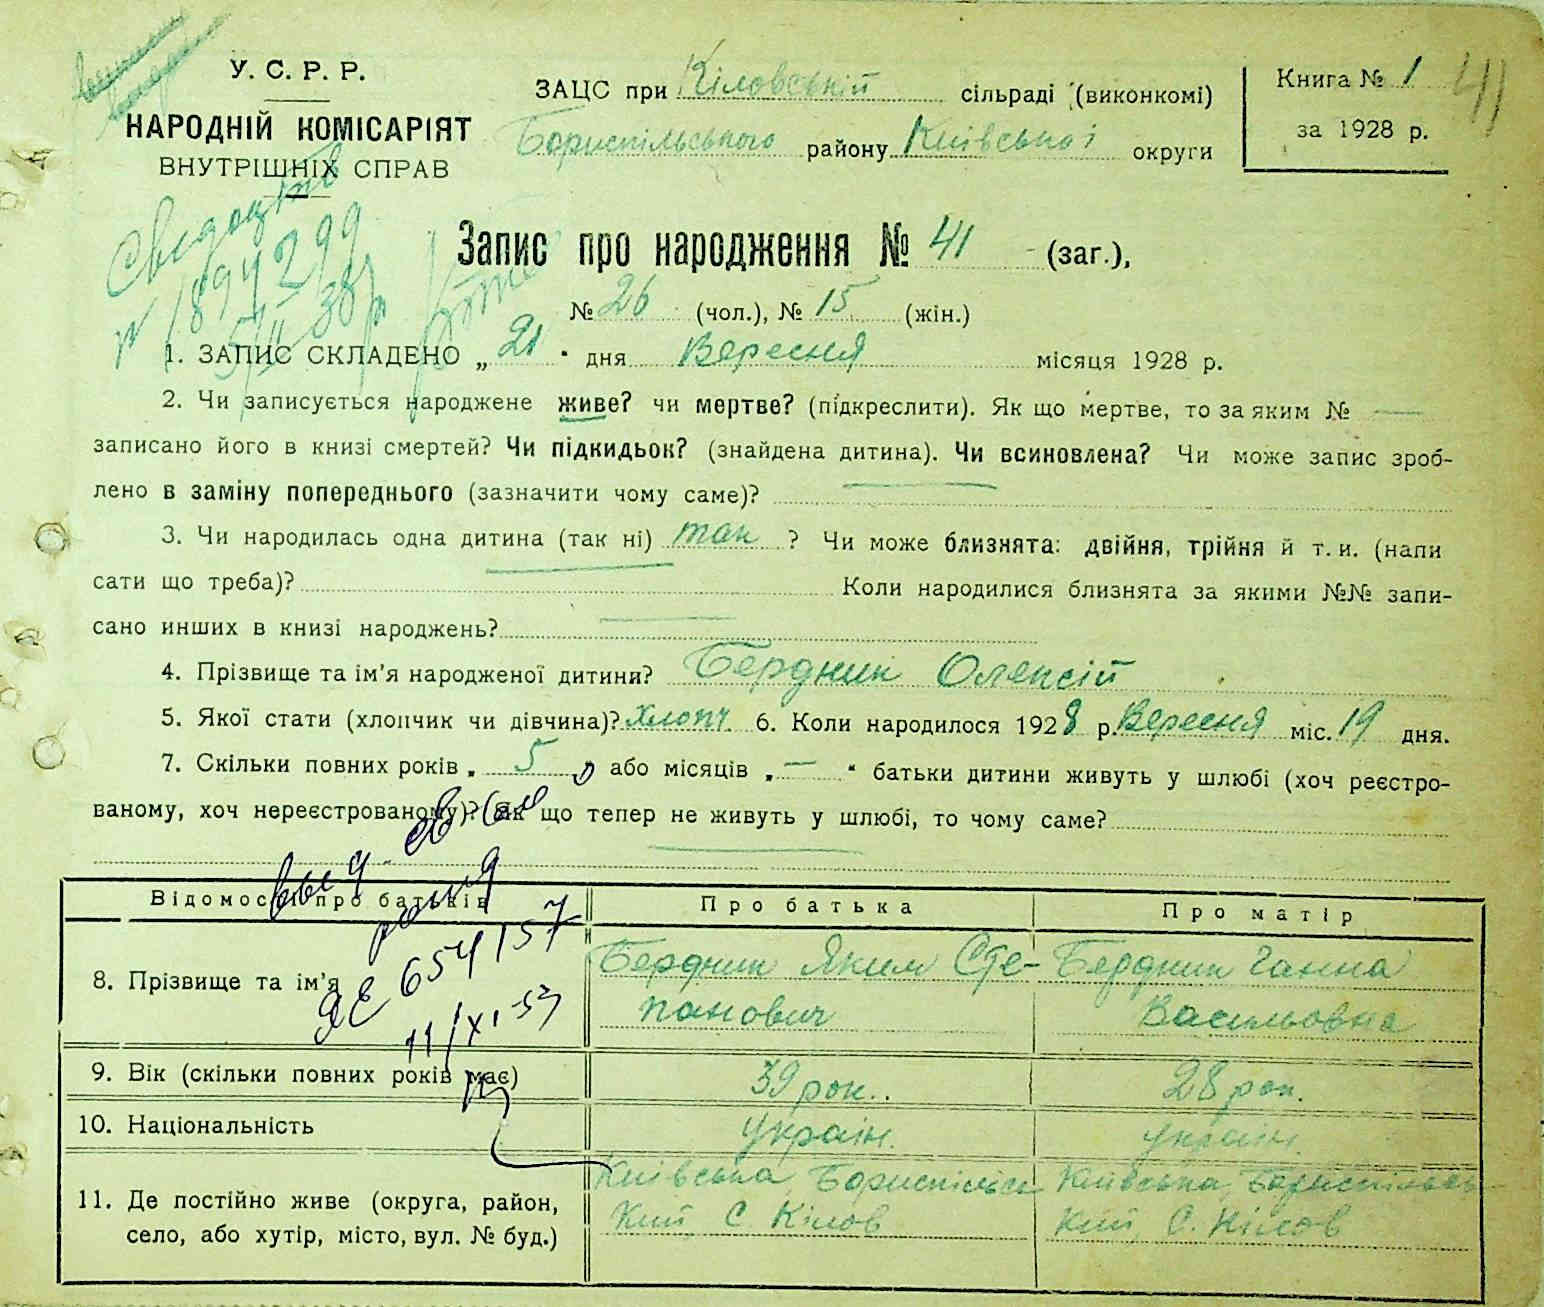 У. С. Р. Р.
НАРОДНІЙ КОМІСАРІЯТ
ВНУТРІШНІХ СПРАВ
ЗАЦС при Кіловській сільраді (виконкомі)
Бориспільського району Київської округи
Книга № 1
за 1928 р.
41
Свідоцтво
№ 1894299
5/II 38 р
Запис про народження № 41 (заг.),
№ 26 (чол.), № 15 (жін.)
1. ЗАПИС СКЛАДЕНО „ 21 “ дня Вересня місяця 1928 р.
2. Чи записується народжене живе? чи мертве? (підкреслити). Як що мертве, то за яким № —
записано його в книзі смертей? Чи підкидьок? (знайдена дитина). Чи всиновлена? Чи може запис зроб-
лено в заміну попереднього (зазначити чому саме)?
3. Чи народилась одна дитина (так ні) так ? Чи може близнята: двійня, трійня й т. и. (напи
сати що треба)? Коли народилися близнята за якими №№ запи-
сано инших в книзі народжень?
4. Прізвище та ім’я народженої дитини? Бердник Олексій
5. Якої стати (хлопчик чи дівчина)? хлопч. 6. Коли народилося 1928 р. Вересня міс. 19 дня.
7. Скільки повних років „ 5 “ або місяців „ — “ батьки дитини живуть у шлюбі (хоч реєстро-
ваному, хоч нереєстрованому)? (Як що тепер не живуть у шлюбі, то чому саме?
654157
11/XI-53
Відомості про батьків Про батька Про матір
8. Прізвище та ім’я Бердник Яким Сте- Бердник Ганна
панович Васильовна
9. Вік (скільки повних років має) 39 рок.. 28 рок.
10. Національність україн. україн.
11. Де постійно живе (округа, район, Київська, Бориспільсь Київська, Бориспільсь
село, або хутір, місто, вул. № буд.) кий С. Кілов кий, С. Кілов